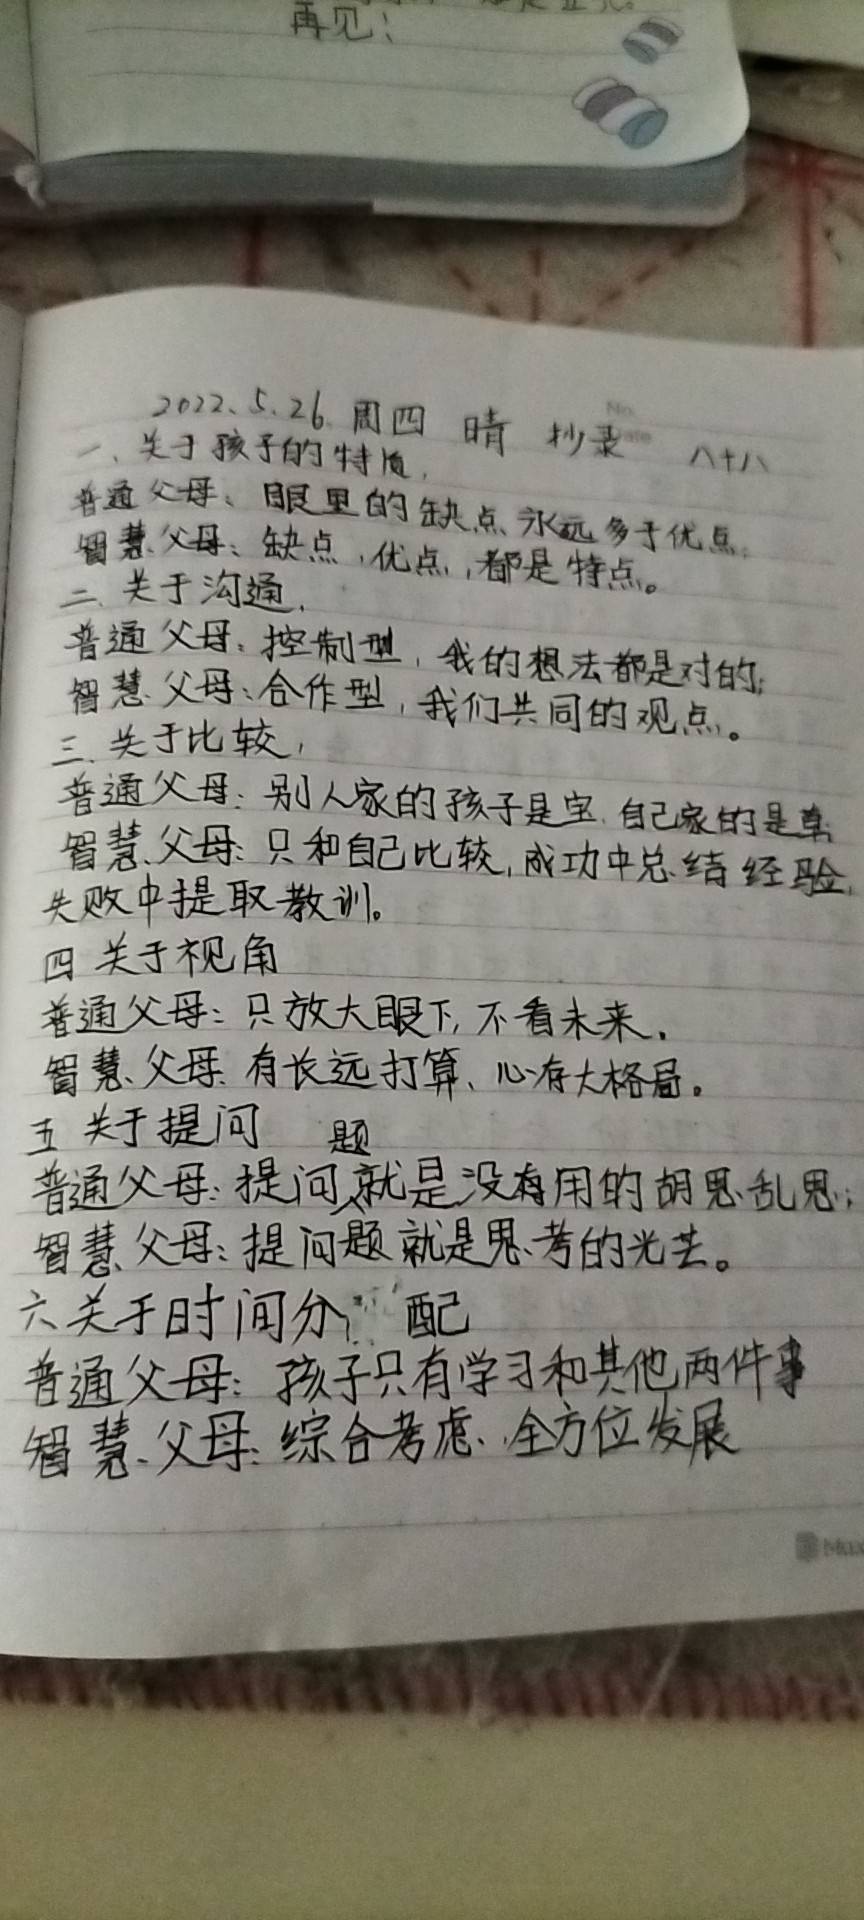 再见！
2022.5.26.周四 晴 抄录 八十八
一、关于孩子的特质，
普通父母：眼里的缺点永远多于优点；
智慧父母：缺点，优点，都是特点。
二、关于沟通，
普通父母：控制型，我的想法都是对的；
智慧父母：合作型，我们共同的观点。
三、关于比较，
普通父母：别人家的孩子是宝，自己家的是草；
智慧父母：只和自己比较，成功中总结经验，
失败中提取教训。
四 关于视角
普通父母：只放大眼下，不看未来。
智慧父母：有长远打算、心有大格局。
五 关于提问
普通父母：提问题就是没有用的胡思乱思；
智慧父母：提问题就是思考的光芒。
六 关于时间分配
普通父母：孩子只有学习和其他两件事
智慧父母：综合考虑，全方位发展